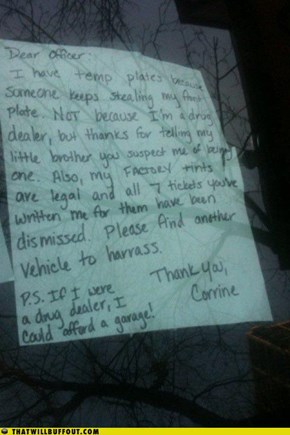 Dear Officer:
I have temp plates because
someone keeps stealing my front
plate. NOT because I'm a drug
dealer, but thanks for telling my
little brother you suspect me of being
one. Also, my FACTORY tints
are legal and all 7 tickets you've
written me for them have been
dismissed. Please find another
vehicle to harrass.
Thank you,
Corrine
P.S. If I were
a drug dealer, I
could afford a garage!
THATWILLBUFFOUT.COM